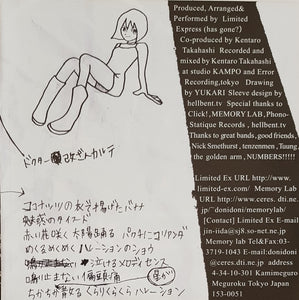 Produced, Arranged&
Performed by Limited
Express (has gone?)
Co-produced by Kentaro
Takahashi Recorded and
mixed by Kentaro Takahashi
at studio KAMPO and Error
Recording,tokyo Drawing
by YUKARI Sleeve design by
hellbent.tv Special thanks to
Click!, MEMORY LAB, Phono-
Statique Records , hellbent.tv
Thanks to great bands, good friends,
Nick Smethurst, tenzenmen , Tsung,
the golden arm , NUMBERS!!!!!
Limited Ex URL http://www.
limited-ex.com/ Memory Lab
URL http://www.ceres.dti.ne.
jp/~donidoni/memorylab/
[Contact] Limited Ex E-mail
m-iida@sj8.so-net.ne.jp
Memory Lab Tel&Fax:03-
3719-1043 E-mail donidoni
@ceres.dti.ne.jp address
4-34-10-301 Kamimeguro
Meguroku Tokyo JAPAN
153-0051
ドクター 改ざんカルテ
ココナッツの衣学揚げたバナナ
魅惑のタイフード
赤い花咲く 太陽踊る
めくるめくめく ハレーションのショウ
メロディセンス
鳴り止まない
ちかちか くらりくらくら ハレーション